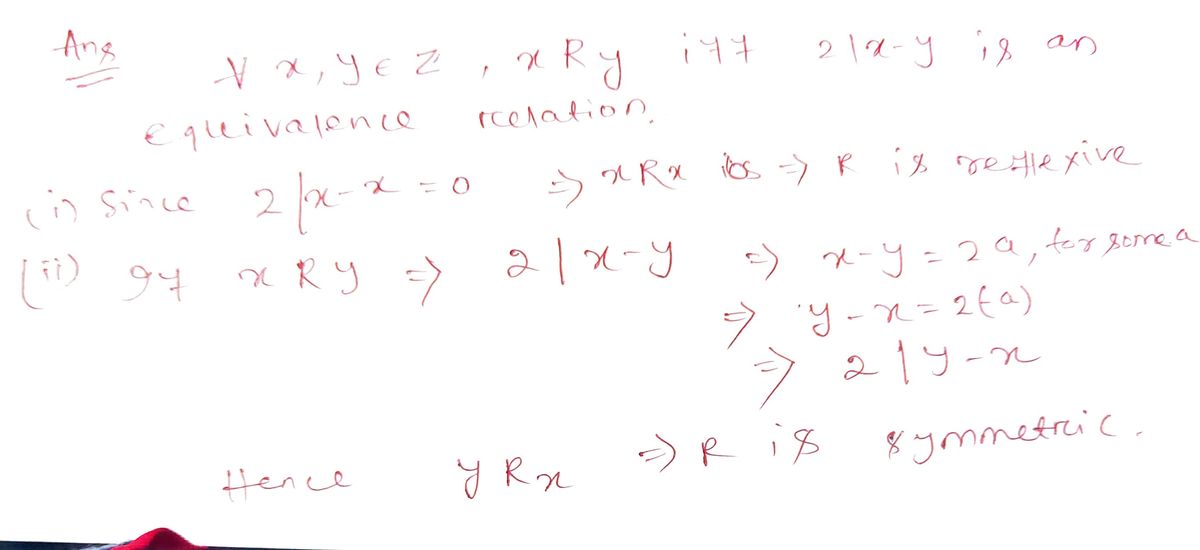 Ans
∀ x, y ∈ Z , x R y iff 2 | x-y is an
equivalence relation.
(i) Since 2 | x-x = 0 ⇒ x R x ⇒ R is reflexive
(ii) If x R y ⇒ 2 | x-y ⇒ x-y = 2a, for some a
⇒ y-x = 2(-a)
⇒ 2 | y-x
Hence y R x ⇒ R is symmetric.